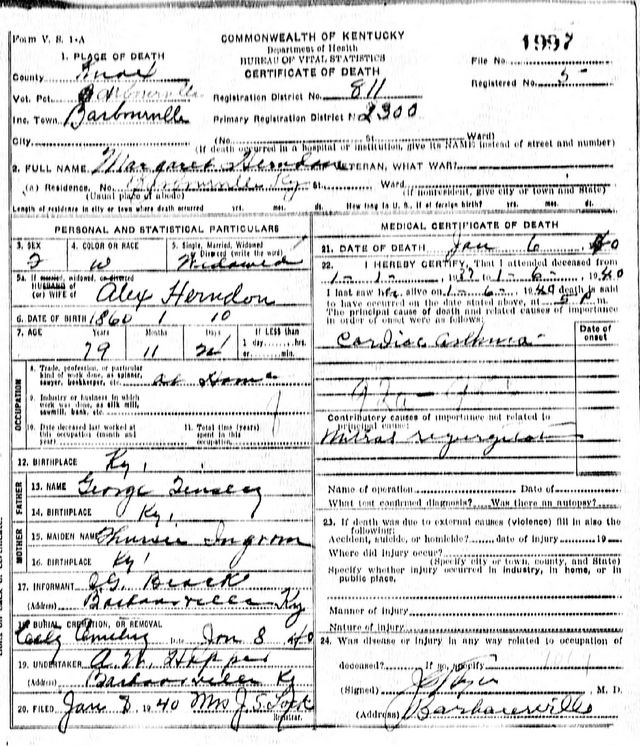 Form V. S. 1-A
COMMONWEALTH OF KENTUCKY
Department of Health
BUREAU OF VITAL STATISTICS
CERTIFICATE OF DEATH
1997
File No.
Registered No. 5
1. PLACE OF DEATH
County Knox
Vot. Pct. Barbourville
Inc. Town Barbourville
City
Registration District No. 811
Primary Registration District No. 2300
(No. St. Ward)
(If death occurred in a hospital or institution, give its NAME instead of street and number)
2. FULL NAME Margaret Herndon VETERAN, WHAT WAR?
(a) Residence. No. Barbourville Ky St. Ward
(Usual place of abode) (If nonresident, give city or town and State)
Length of residence in city or town where death occurred yrs. mos. ds. How long in U. S., if of foreign birth? yrs. mos. ds.
PERSONAL AND STATISTICAL PARTICULARS
3. SEX F
4. COLOR OR RACE W
5. Single, Married, Widowed or Divorced (write the word) Widowed
5a If married, widowed, or divorced
HUSBAND of
(or) WIFE of Alex Herndon
6. DATE OF BIRTH 1860 1 10
7. AGE Years Months Days If LESS than
79 11 1 day, hrs.
or min.
OCCUPATION
8. Trade, profession, or particular
kind of work done, as spinner,
sawyer, bookkeeper, etc. at Home
9. Industry or business in which
work was done, as silk mill,
sawmill, bank, etc.
10. Date deceased last worked at
this occupation (month and
year)
11. Total time (years)
spent in this
occupation
12. BIRTHPLACE Ky.
FATHER
13. NAME George Tinsley
14. BIRTHPLACE Ky.
MOTHER
15. MAIDEN NAME Ingram
16. BIRTHPLACE Ky
17. INFORMANT
(Address) Barbourville Ky
18 BURIAL, CREMATION, OR REMOVAL
Cemetery Date Jan 8 40
19. UNDERTAKER A. W. Hopper
(Address) Barbourville Ky
20. FILED Jan 8, 1940 Mrs J. S.
Registrar.
MEDICAL CERTIFICATE OF DEATH
21. DATE OF DEATH Jan 6 40
22. I HEREBY CERTIFY, That I attended deceased from
1-1-, 1939 to 1-6-, 1940
I last saw her alive on 1-6-, 1940 death is said
to have occurred on the date stated above, at 5 P m.
The principal cause of death and related causes of importance
in order of onset were as follows:
Date of
onset
Cardiac asthma
Contributory causes of importance not related to
principal cause:
Mitral regurgitation
Name of operation Date of
What test confirmed diagnosis? Was there an autopsy?
23. If death was due to external causes (violence) fill in also the
following:
Accident, suicide, or homicide? date of injury 19
Where did injury occur?
(Specify city or town, county, and State)
Specify whether injury occurred in industry, in home, or in
public place.
Manner of injury
Nature of injury
24. Was disease or injury in any way related to occupation of
deceased? If so, specify
(Signed) M. D.
(Address) Barbourville